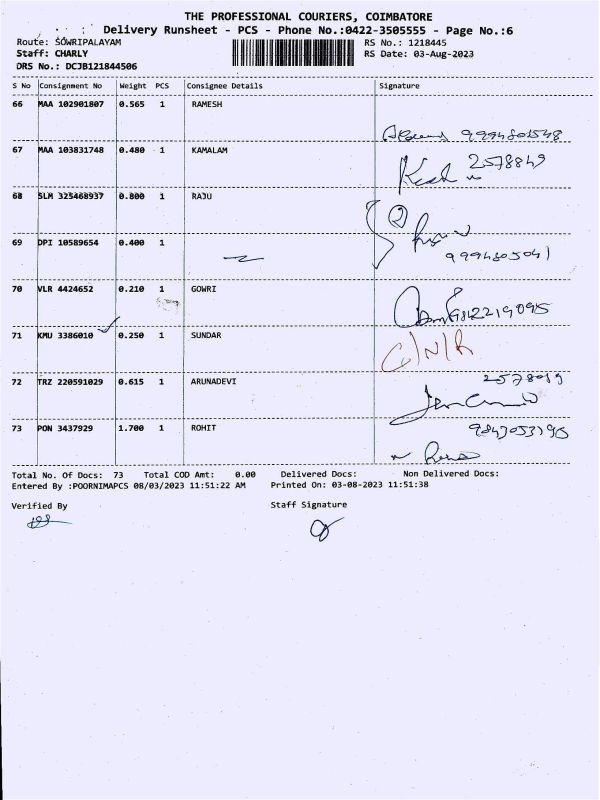 THE PROFESSIONAL COURIERS, COIMBATORE
Delivery Runsheet - PCS - Phone No.:0422-3505555 - Page No.:6
Route: SOWRIPALAYAM RS No.: 1218445
Staff: CHARLY RS Date: 03-Aug-2023
DRS No.: DCJB121844506
S No Consignment No Weight PCS Consignee Details Signature
66 MAA 102901807 0.565 1 RAMESH
9994801548
67 MAA 103831748 0.480 1 KAMALAM
2578849
68 SLM 325468937 0.800 1 RAJU
69 DPI 10589654 0.400 1
9994805041
70 VLR 4424652 0.210 1 GOWRI
9842219095
71 KMU 3386010 0.250 1 SUNDAR
C/N/R
72 TRZ 220591029 0.615 1 ARUNADEVI
73 PON 3437929 1.700 1 ROHIT
9843053195
Total No. Of Docs: 73 Total COD Amt: 0.00 Delivered Docs: Non Delivered Docs:
Entered By :POORNIMAPCS 08/03/2023 11:51:22 AM Printed On: 03-08-2023 11:51:38
Verified By Staff Signature